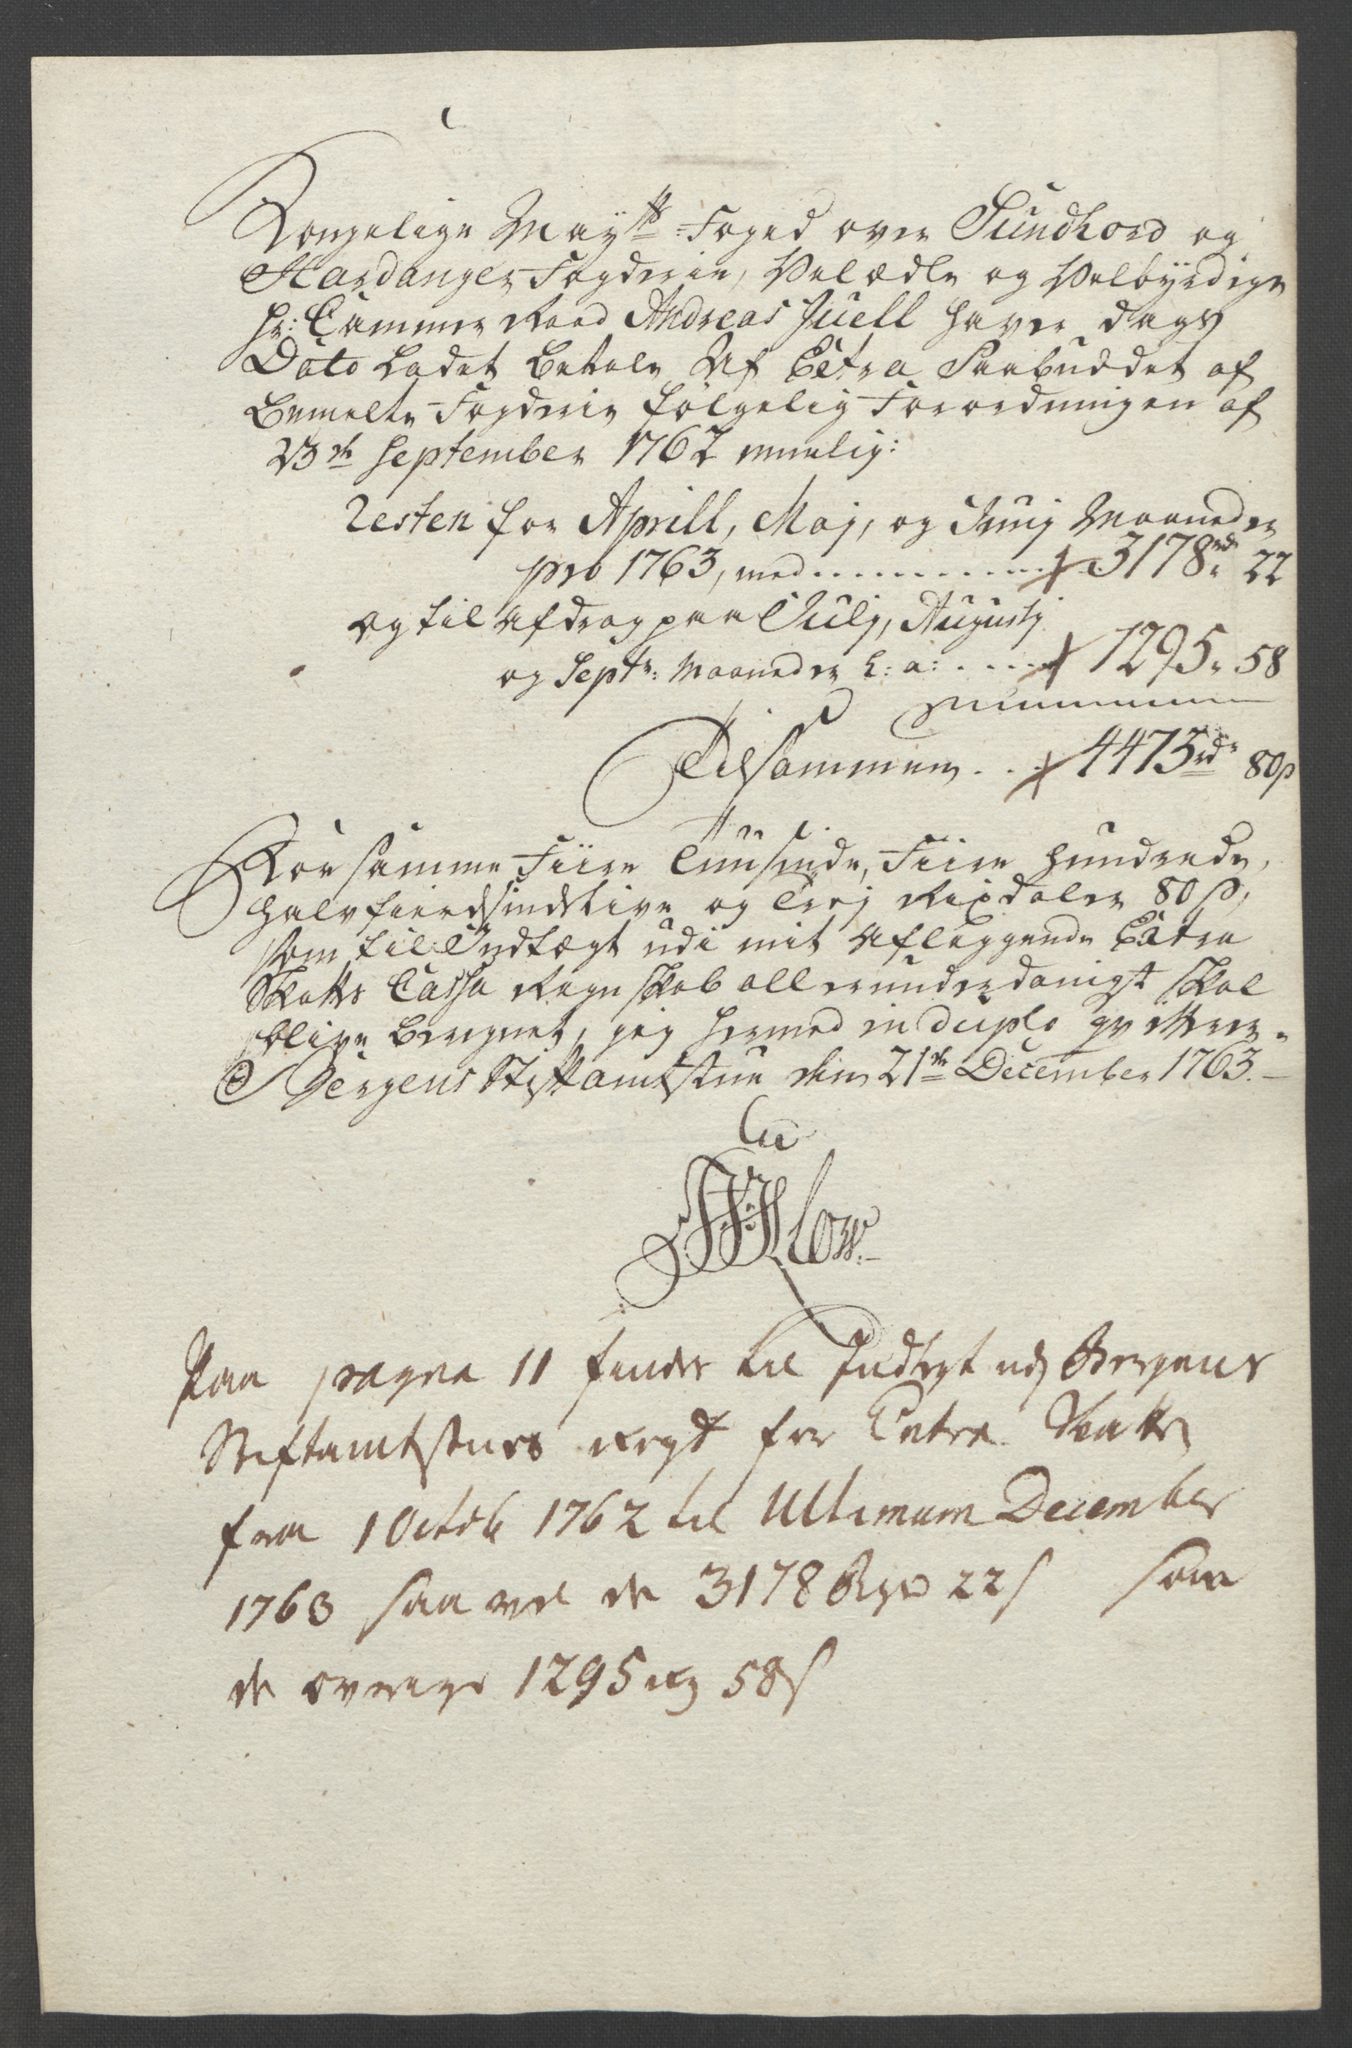 Kongelige May:ts Foged over Sundhord og
Hardanger Fogderie, Velædle og Velbyrdige
Hr: Cammer Raad Andreas Juell haver dags
Dato ladet betale af Extra Paabuddet af
bemelte Fogderie følgelig Forordningen af
23de September 1762 nemlig:
Resten for Aprill, Maj, og Junij Maaneder
pro 1763, med . . . . . . . . . . . 3178rd 22
og til Afdrag paa Julj, Augustj
og Septr: Maaneder h: a: . . . . . 1295 " 58
Tilsammen . . 4473rd 80 s
For samme Fiire Tusinde, Fiire hundrede,
halvfierdsindstive og Trej Rixdaler 80 s,
som til Indtægt udi mit aflæggende Extra
Skatts Cassa Regnskab allerunderdanigst skal
blive beregnet, jeg hermed in duplo qvitterer.
Bergens Stiftamtstue den 21de December 1763.
Paa pagna 11 findes til Indtegt udj Bergens
Stiftamtstues Regsk for Extra Skatten
fra 1 Octob 1762 til Ultimum December
1763 saa vel de 3178 Rdr 22 s som
de øvrige 1295 Rd 58 s